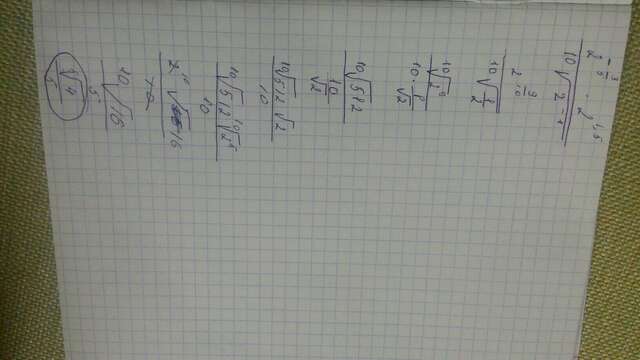 2^{-3/5} · 2^{1,5}
10√2^{-1}
2^{9/10}
10√(1/2)
^{10}√2^{9}
10 · 1/√2
^{10}√512
10/√2
^{10}√512 √2
10
^{10}√512 ^{10}√2^{5}
10
2 ^{10}√16
10
^{10}√16
5
√4
5